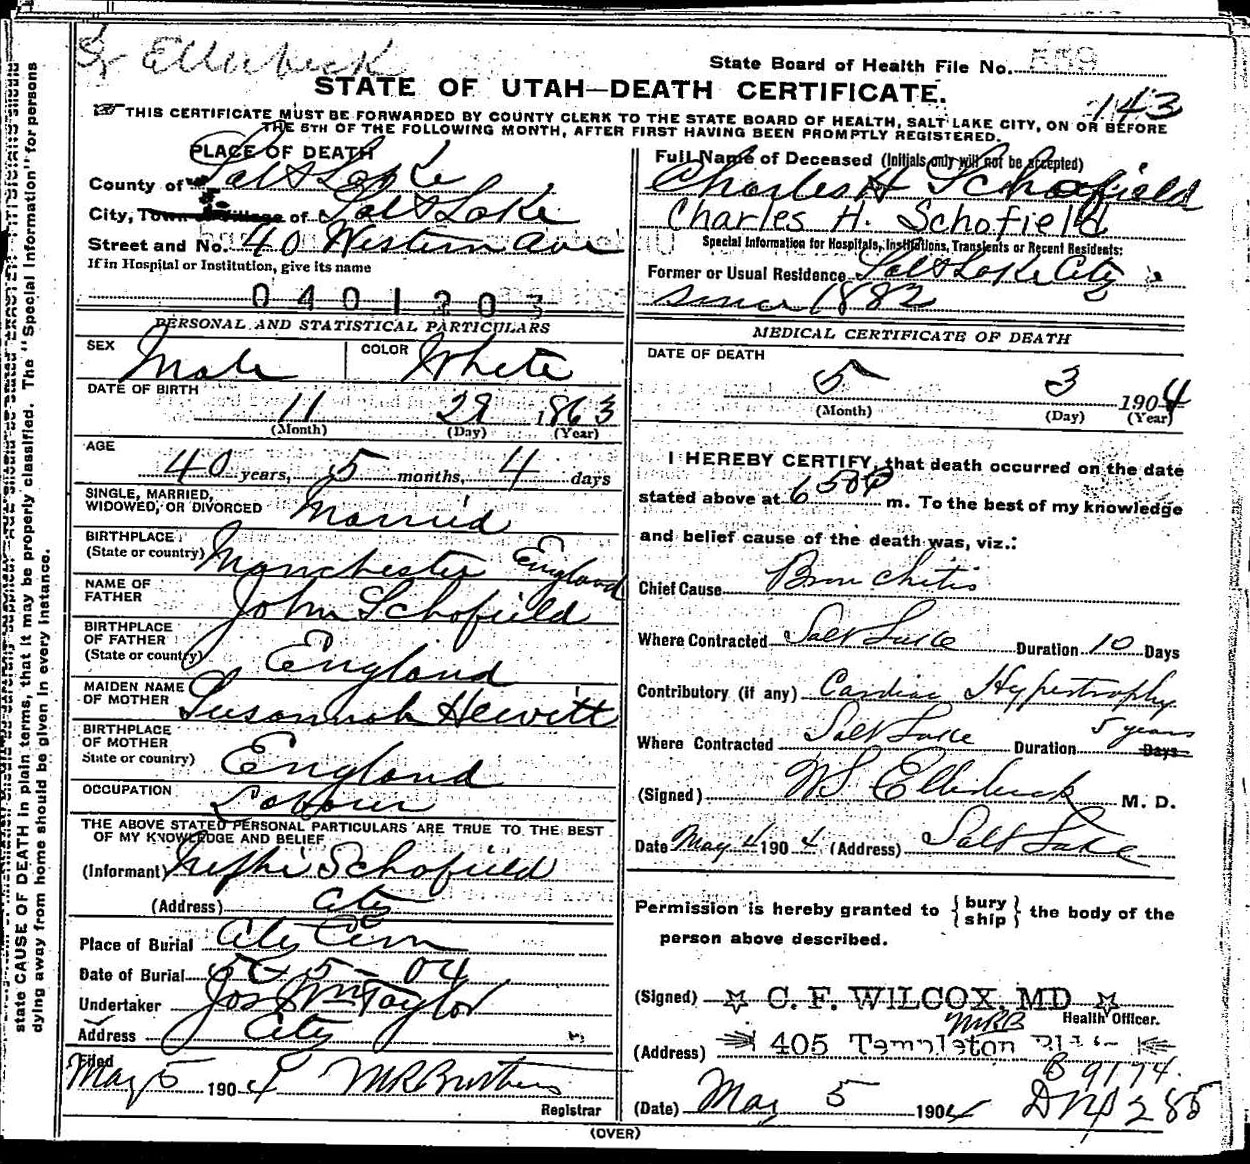 Dr Ellerbeck
State Board of Health File No. 559
STATE OF UTAH—DEATH CERTIFICATE.
143
THIS CERTIFICATE MUST BE FORWARDED BY COUNTY CLERK TO THE STATE BOARD OF HEALTH, SALT LAKE CITY, ON OR BEFORE
THE 5TH OF THE FOLLOWING MONTH, AFTER FIRST HAVING BEEN PROMPTLY REGISTERED.
PLACE OF DEATH
County of Salt Lake
City, Town or Village of Salt Lake
Street and No. 40 Western Ave
If in Hospital or Institution, give its name
0401203
Full Name of Deceased (Initials only will not be accepted)
Charles H Schofield
Charles H. Schofield
Special Information for Hospitals, Institutions, Transients or Recent Residents:
Former or Usual Residence Salt Lake City
since 1882
PERSONAL AND STATISTICAL PARTICULARS
SEX Male COLOR White
DATE OF BIRTH
11 29 1863
(Month) (Day) (Year)
AGE
40 years, 5 months, 4 days
SINGLE, MARRIED,
WIDOWED, OR DIVORCED Married
BIRTHPLACE
(State or country) Manchester England
NAME OF
FATHER John Schofield
BIRTHPLACE
OF FATHER
(State or country) England
MAIDEN NAME
OF MOTHER Susannah Hewitt
BIRTHPLACE
OF MOTHER
State or country) England
OCCUPATION Labourer
THE ABOVE STATED PERSONAL PARTICULARS ARE TRUE TO THE BEST
OF MY KNOWLEDGE AND BELIEF
(Informant) Nephi Schofield
(Address) City
Place of Burial City Cem
Date of Burial 5-5-04
Undertaker Jos Wm Taylor
Address City
Filed
May 5 1904 Registrar
MEDICAL CERTIFICATE OF DEATH
DATE OF DEATH
5 3 1904
(Month) (Day) (Year)
I HEREBY CERTIFY, that death occurred on the date
stated above at 6 50 P m. To the best of my knowledge
and belief cause of the death was, viz.:
Chief Cause Bronchitis
Where Contracted Salt Lake Duration 10 Days
Contributory (if any) Cardiac Hypertrophy
Where Contracted Salt Lake Duration 5 years Days
(Signed) WS Ellerbeck M. D.
Date May 4 1904 (Address) Salt Lake
Permission is hereby granted to {bury
ship} the body of the
person above described.
(Signed) ☆ C. F. WILCOX, MD ☆
MRB Health Officer.
(Address) 405 Templeton
B 9174.
(Date) May 5 1904
(OVER)
state CAUSE OF DEATH in plain terms, that it may be properly classified. The "Special Information" for persons
dying away from home should be given in every instance.